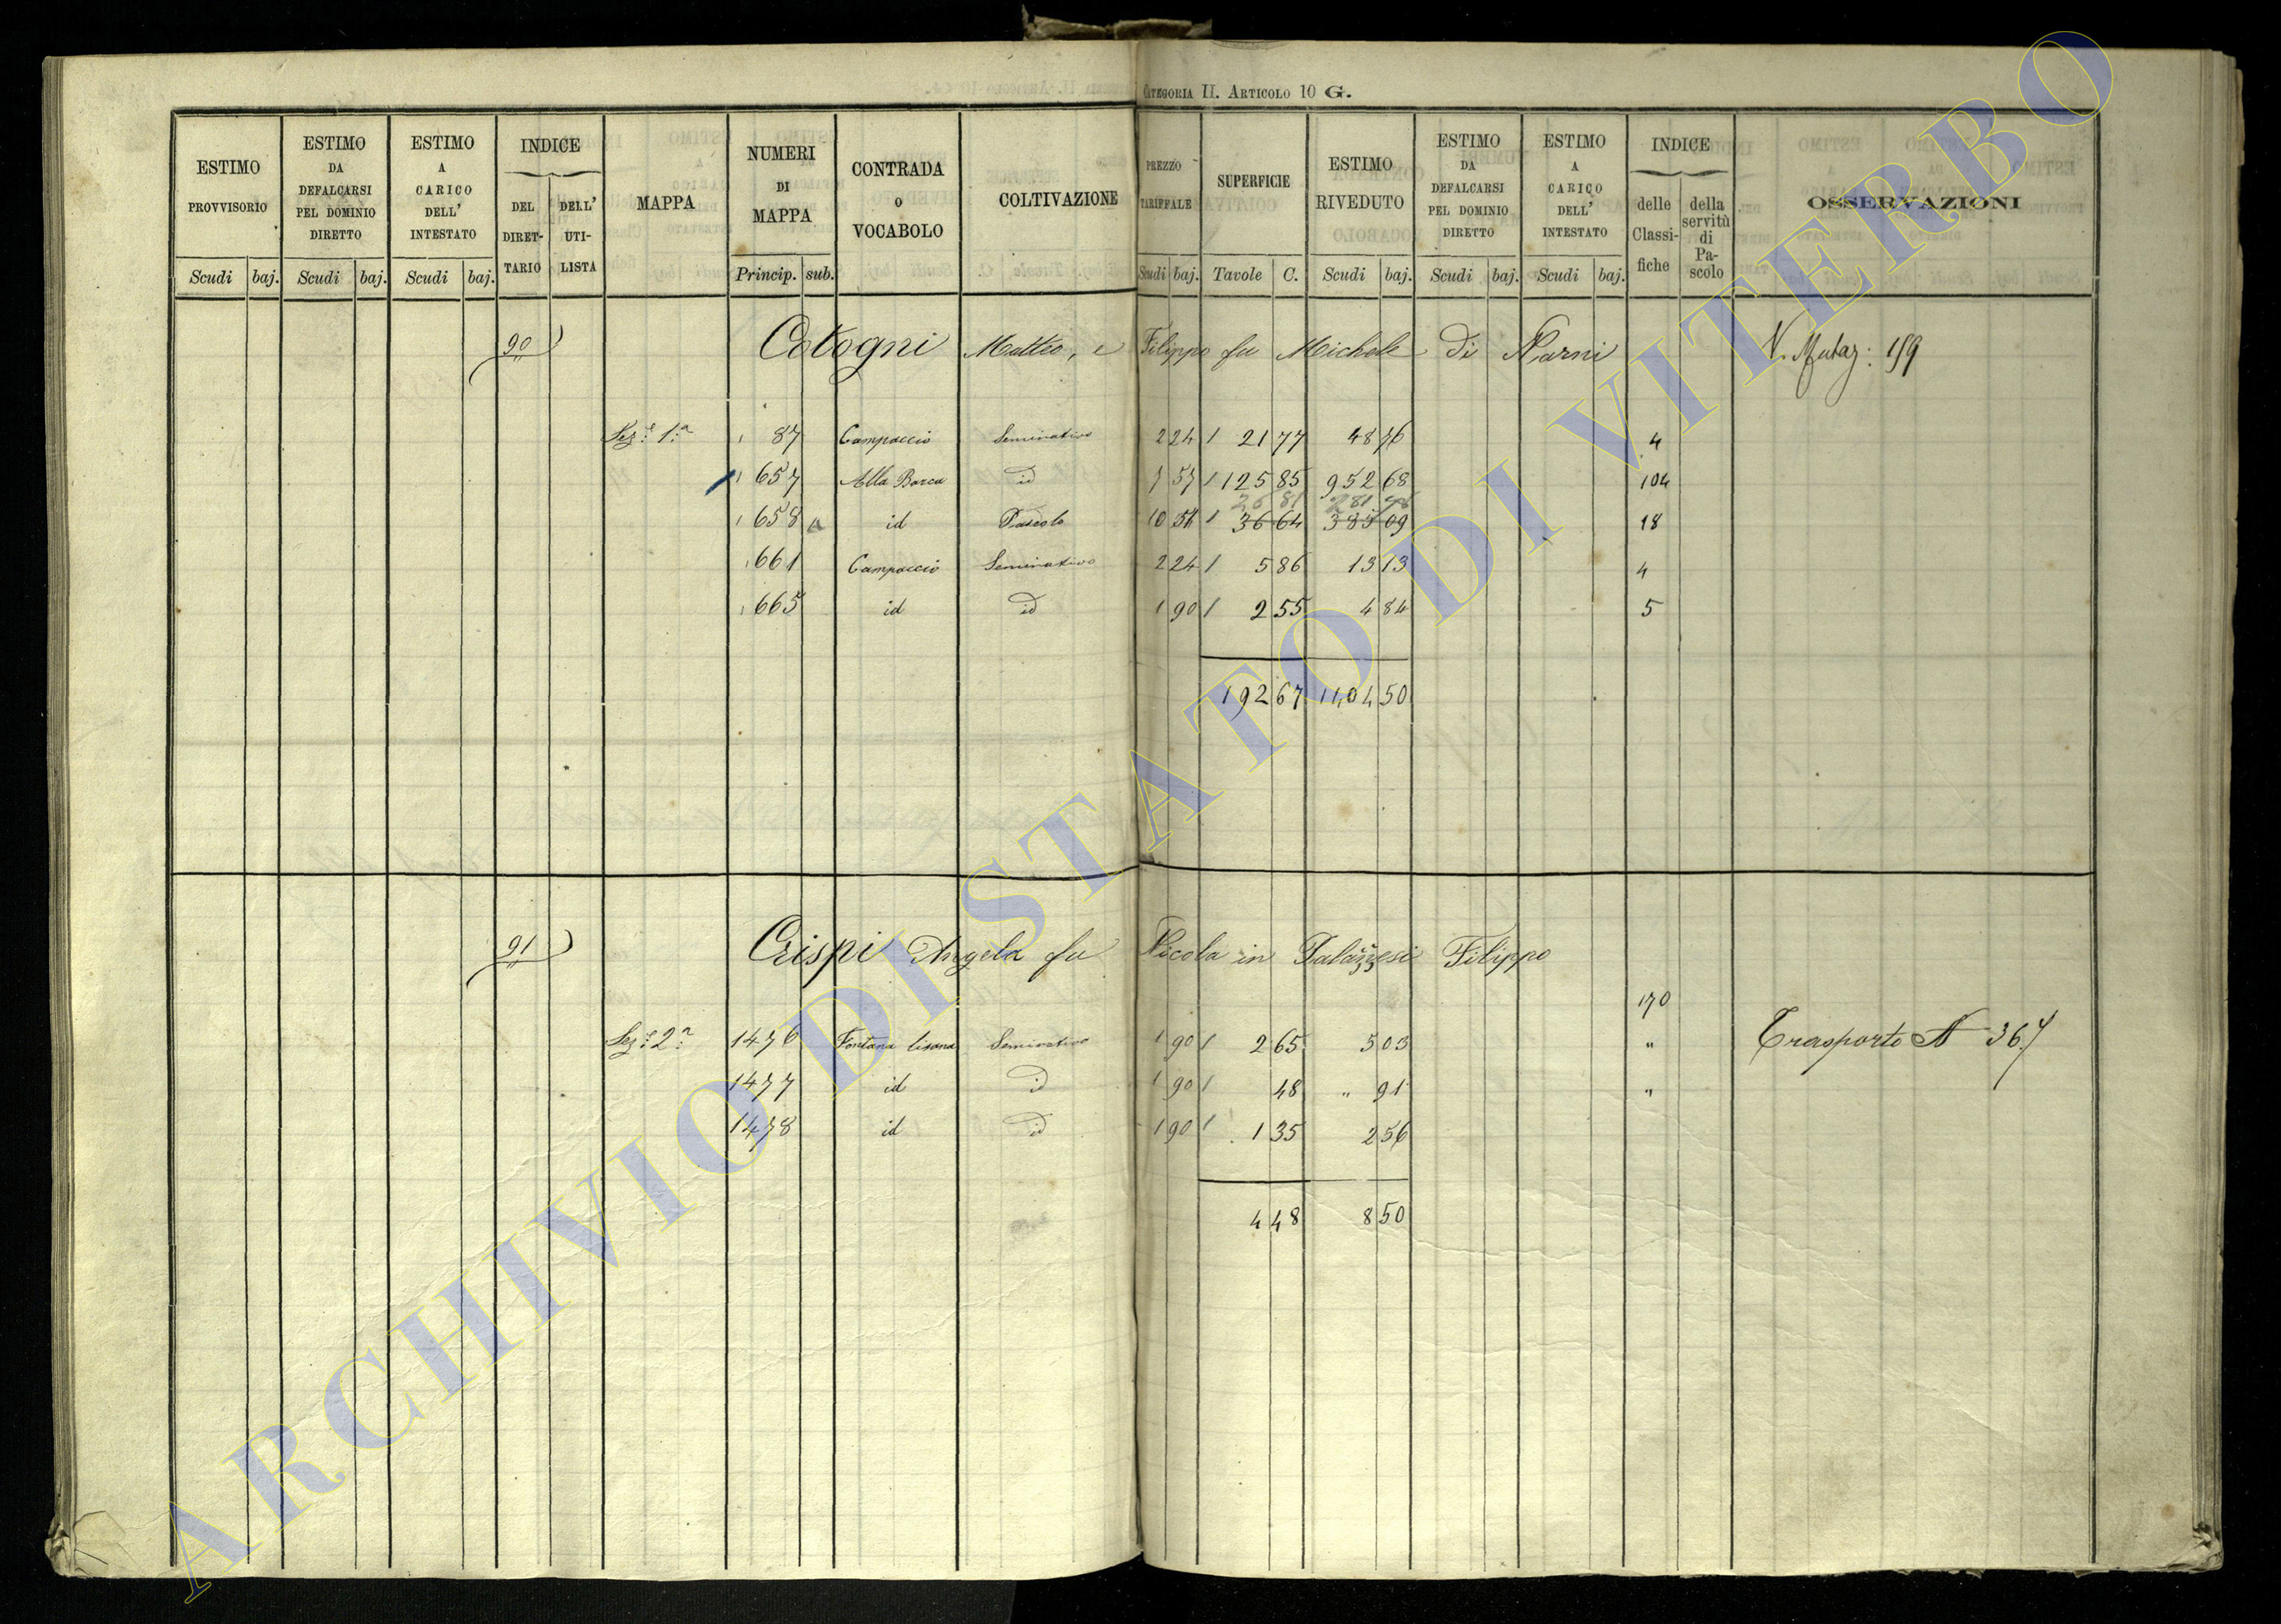 CATEGORIA II. ARTICOLO 10 G.
ESTIMO PROVVISORIO Scudi baj.
ESTIMO DA DEFALCARSI PEL DOMINIO DIRETTO Scudi baj.
ESTIMO A CARICO DELL' INTESTATO Scudi baj.
INDICE DEL DIRETTARIO DELL' UTILISTA
MAPPA
NUMERI DI MAPPA Princip. sub.
CONTRADA O VOCABOLO
COLTIVAZIONE
PREZZO TARIFFALE Scudi baj.
SUPERFICIE Tavole C.
ESTIMO RIVEDUTO Scudi baj.
ESTIMO DA DEFALCARSI PEL DOMINIO DIRETTO Scudi baj.
ESTIMO A CARICO DELL' INTESTATO Scudi baj.
INDICE delle Classifiche della servitù di Pascolo
OSSERVAZIONI
90 Cotogni Matteo, e Filippo fu Michele di Narni V. Mutaz: 159
Sez.e 1.a 87 Campaccio Seminativo 2 24 21 77 48 76 4
657 Alla Barca id 7 57 125 85 952 68 104
26 81 281
658 a id Pascolo 10 51 36 64 385 09 18
661 Campaccio Seminativo 2 24 5 86 13 13 4
665 id id 1 90 2 55 4 84 5
192 67 1404 50
91 Crispi Angela fu Nicola in Palazzesi Filippo
170
Sez.e 2.a 1476 Fontana lisana Seminativo 1 90 2 65 5 03 " Trasporto N 367
1477 id id 1 90 48 " 91 "
1478 id id 1 90 1 35 2 56
4 48 8 50
ARCHIVIO DI STATO DI VITERBO